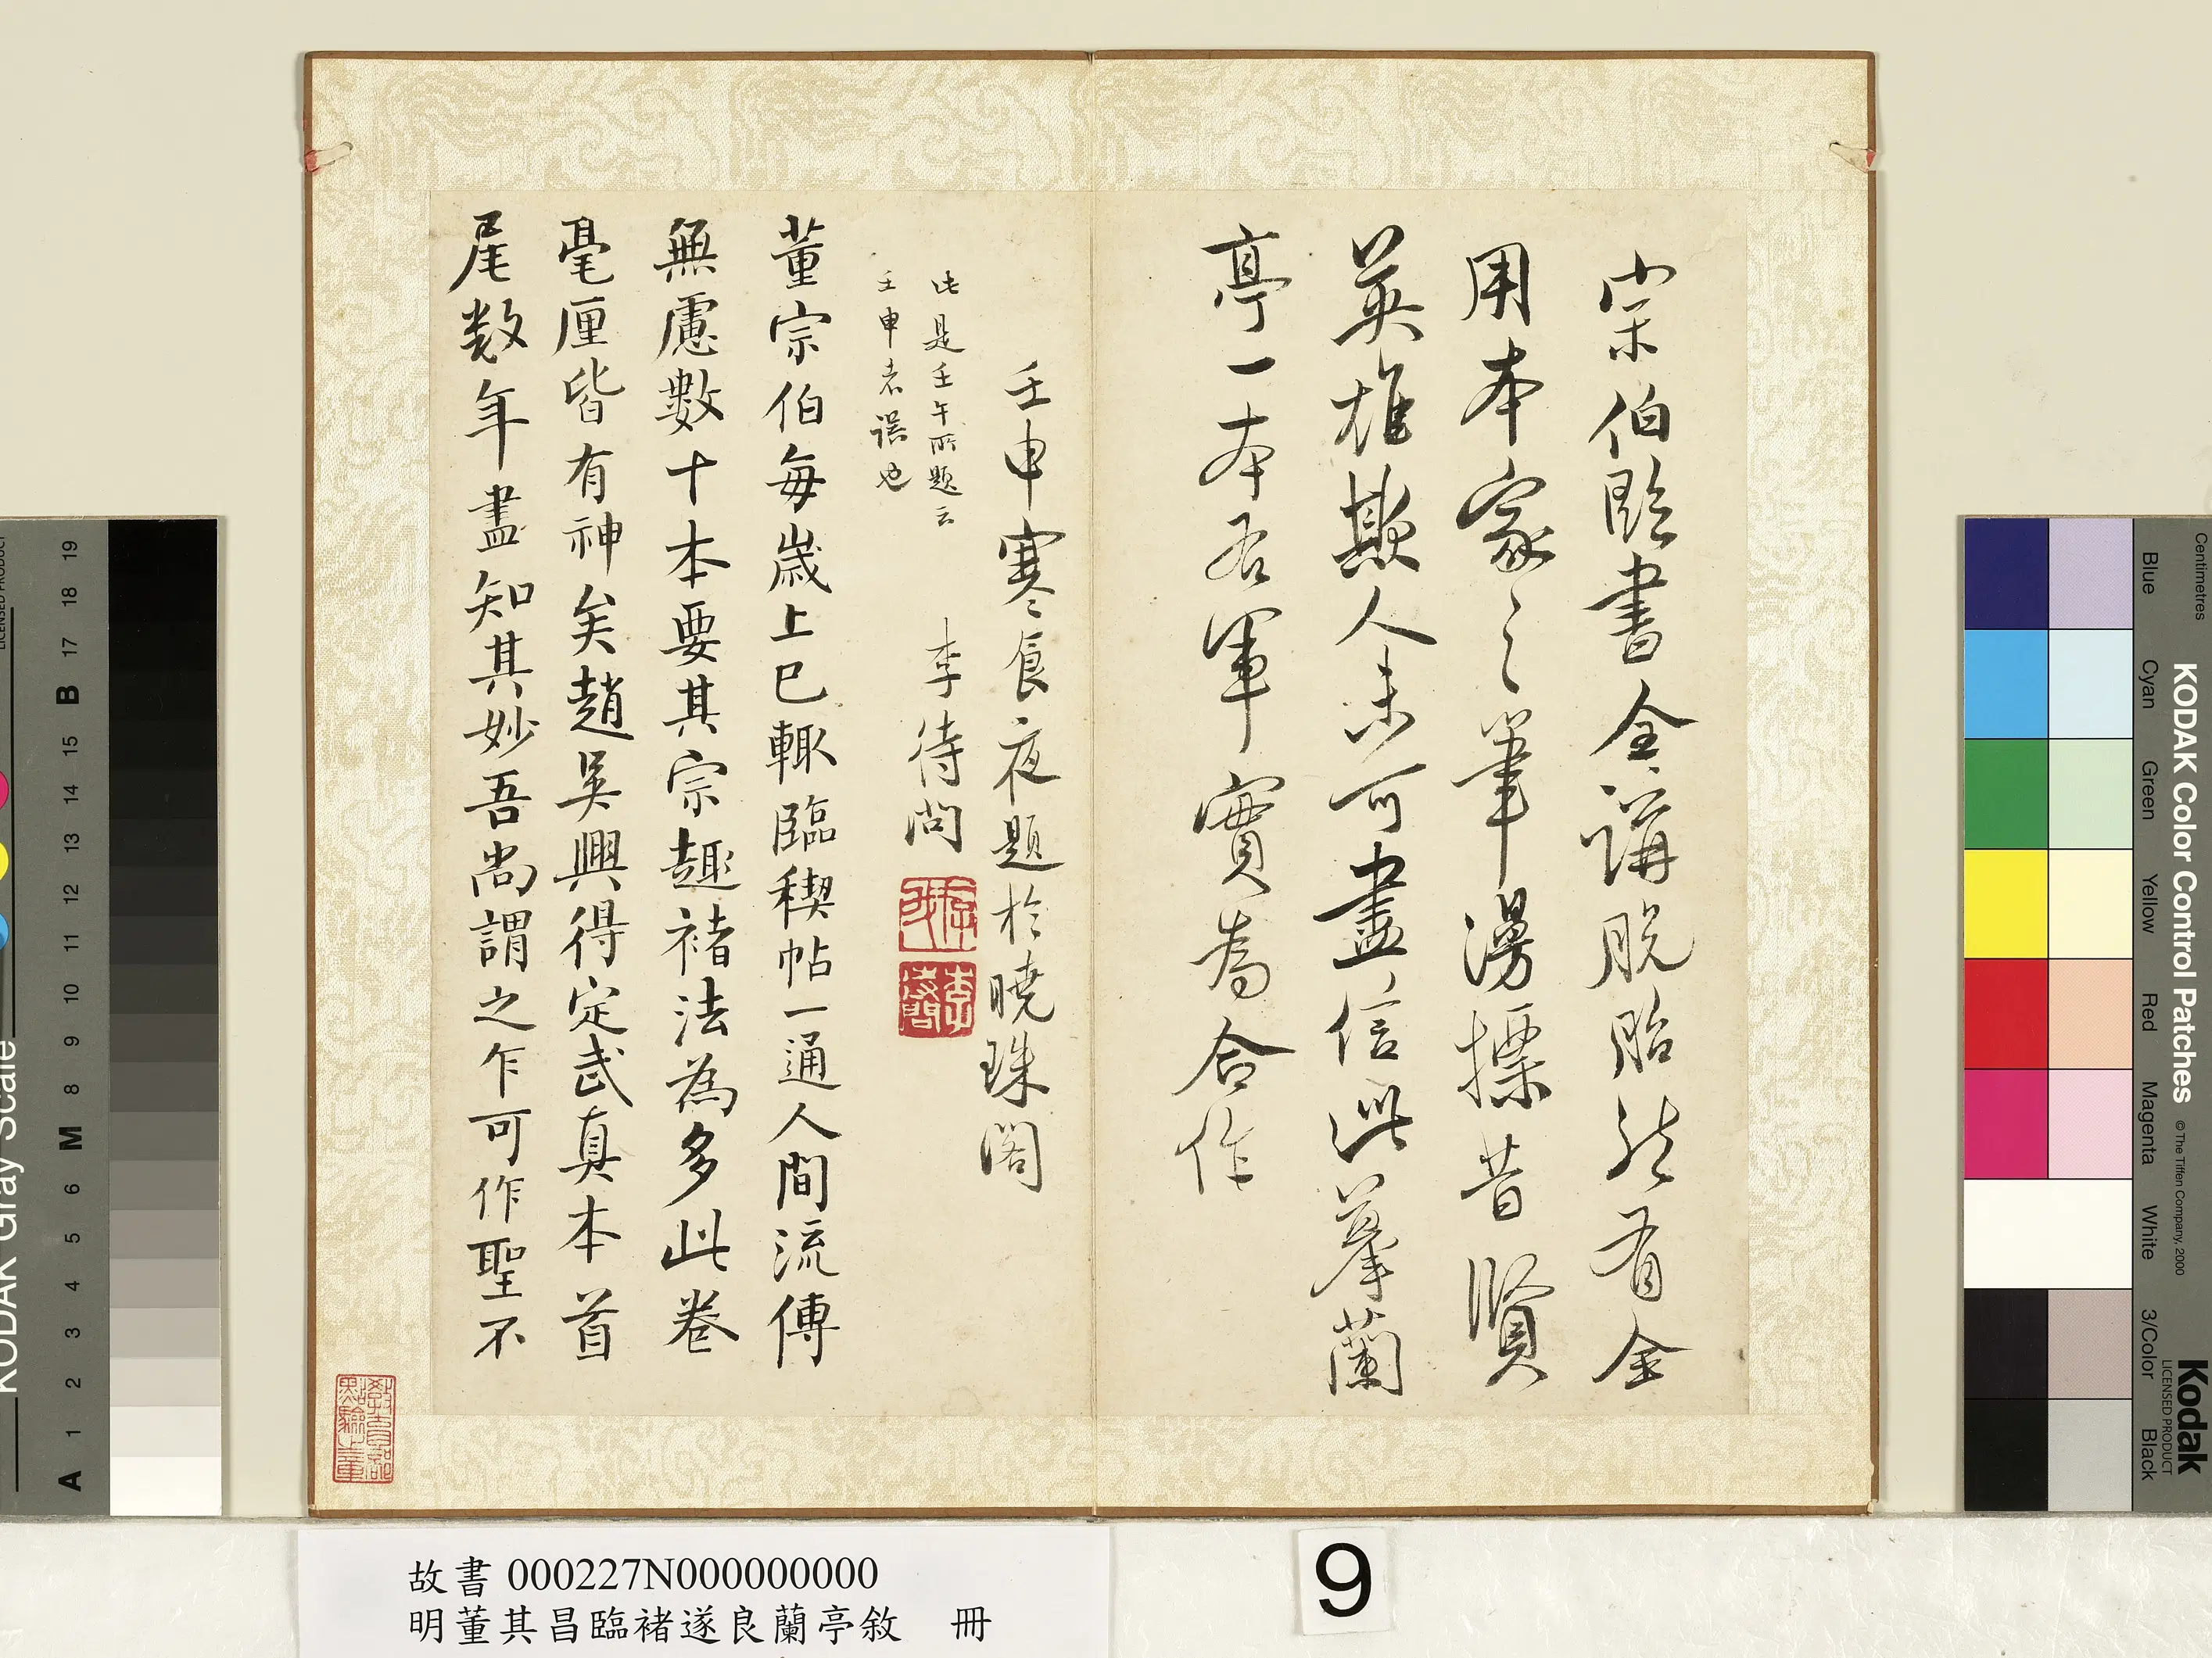 宗伯臨書全講脫胎然有全
用本家之筆湯摽昔賢
英雄欺人未可盡信此摹蘭
亭一本右軍實為合作
壬申寒食夜題於曉珠閣
李待問
此是壬午所題云
壬申者誤也
董宗伯每歲上巳輒臨稧帖一通人間流傳
無慮數十本要其宗趣褚法為多此卷
毫厘皆有神矣趙吳興得定武真本首
尾数年盡知其妙吾尚謂之乍可作聖不
故書 000227N000000000
明董其昌臨褚遂良蘭亭敘 冊
9
KODAK Color Control Patches
© The Tiffen Company, 2000
Kodak
LICENSED PRODUCT
Centimetres
Blue
Cyan
Green
Yellow
Red
Magenta
White
3/Color
Black
KODAK Gray Scale
A 1 2 3 4 5 6 M 8 9 10 11 12 13 14 15 B 17 18 19